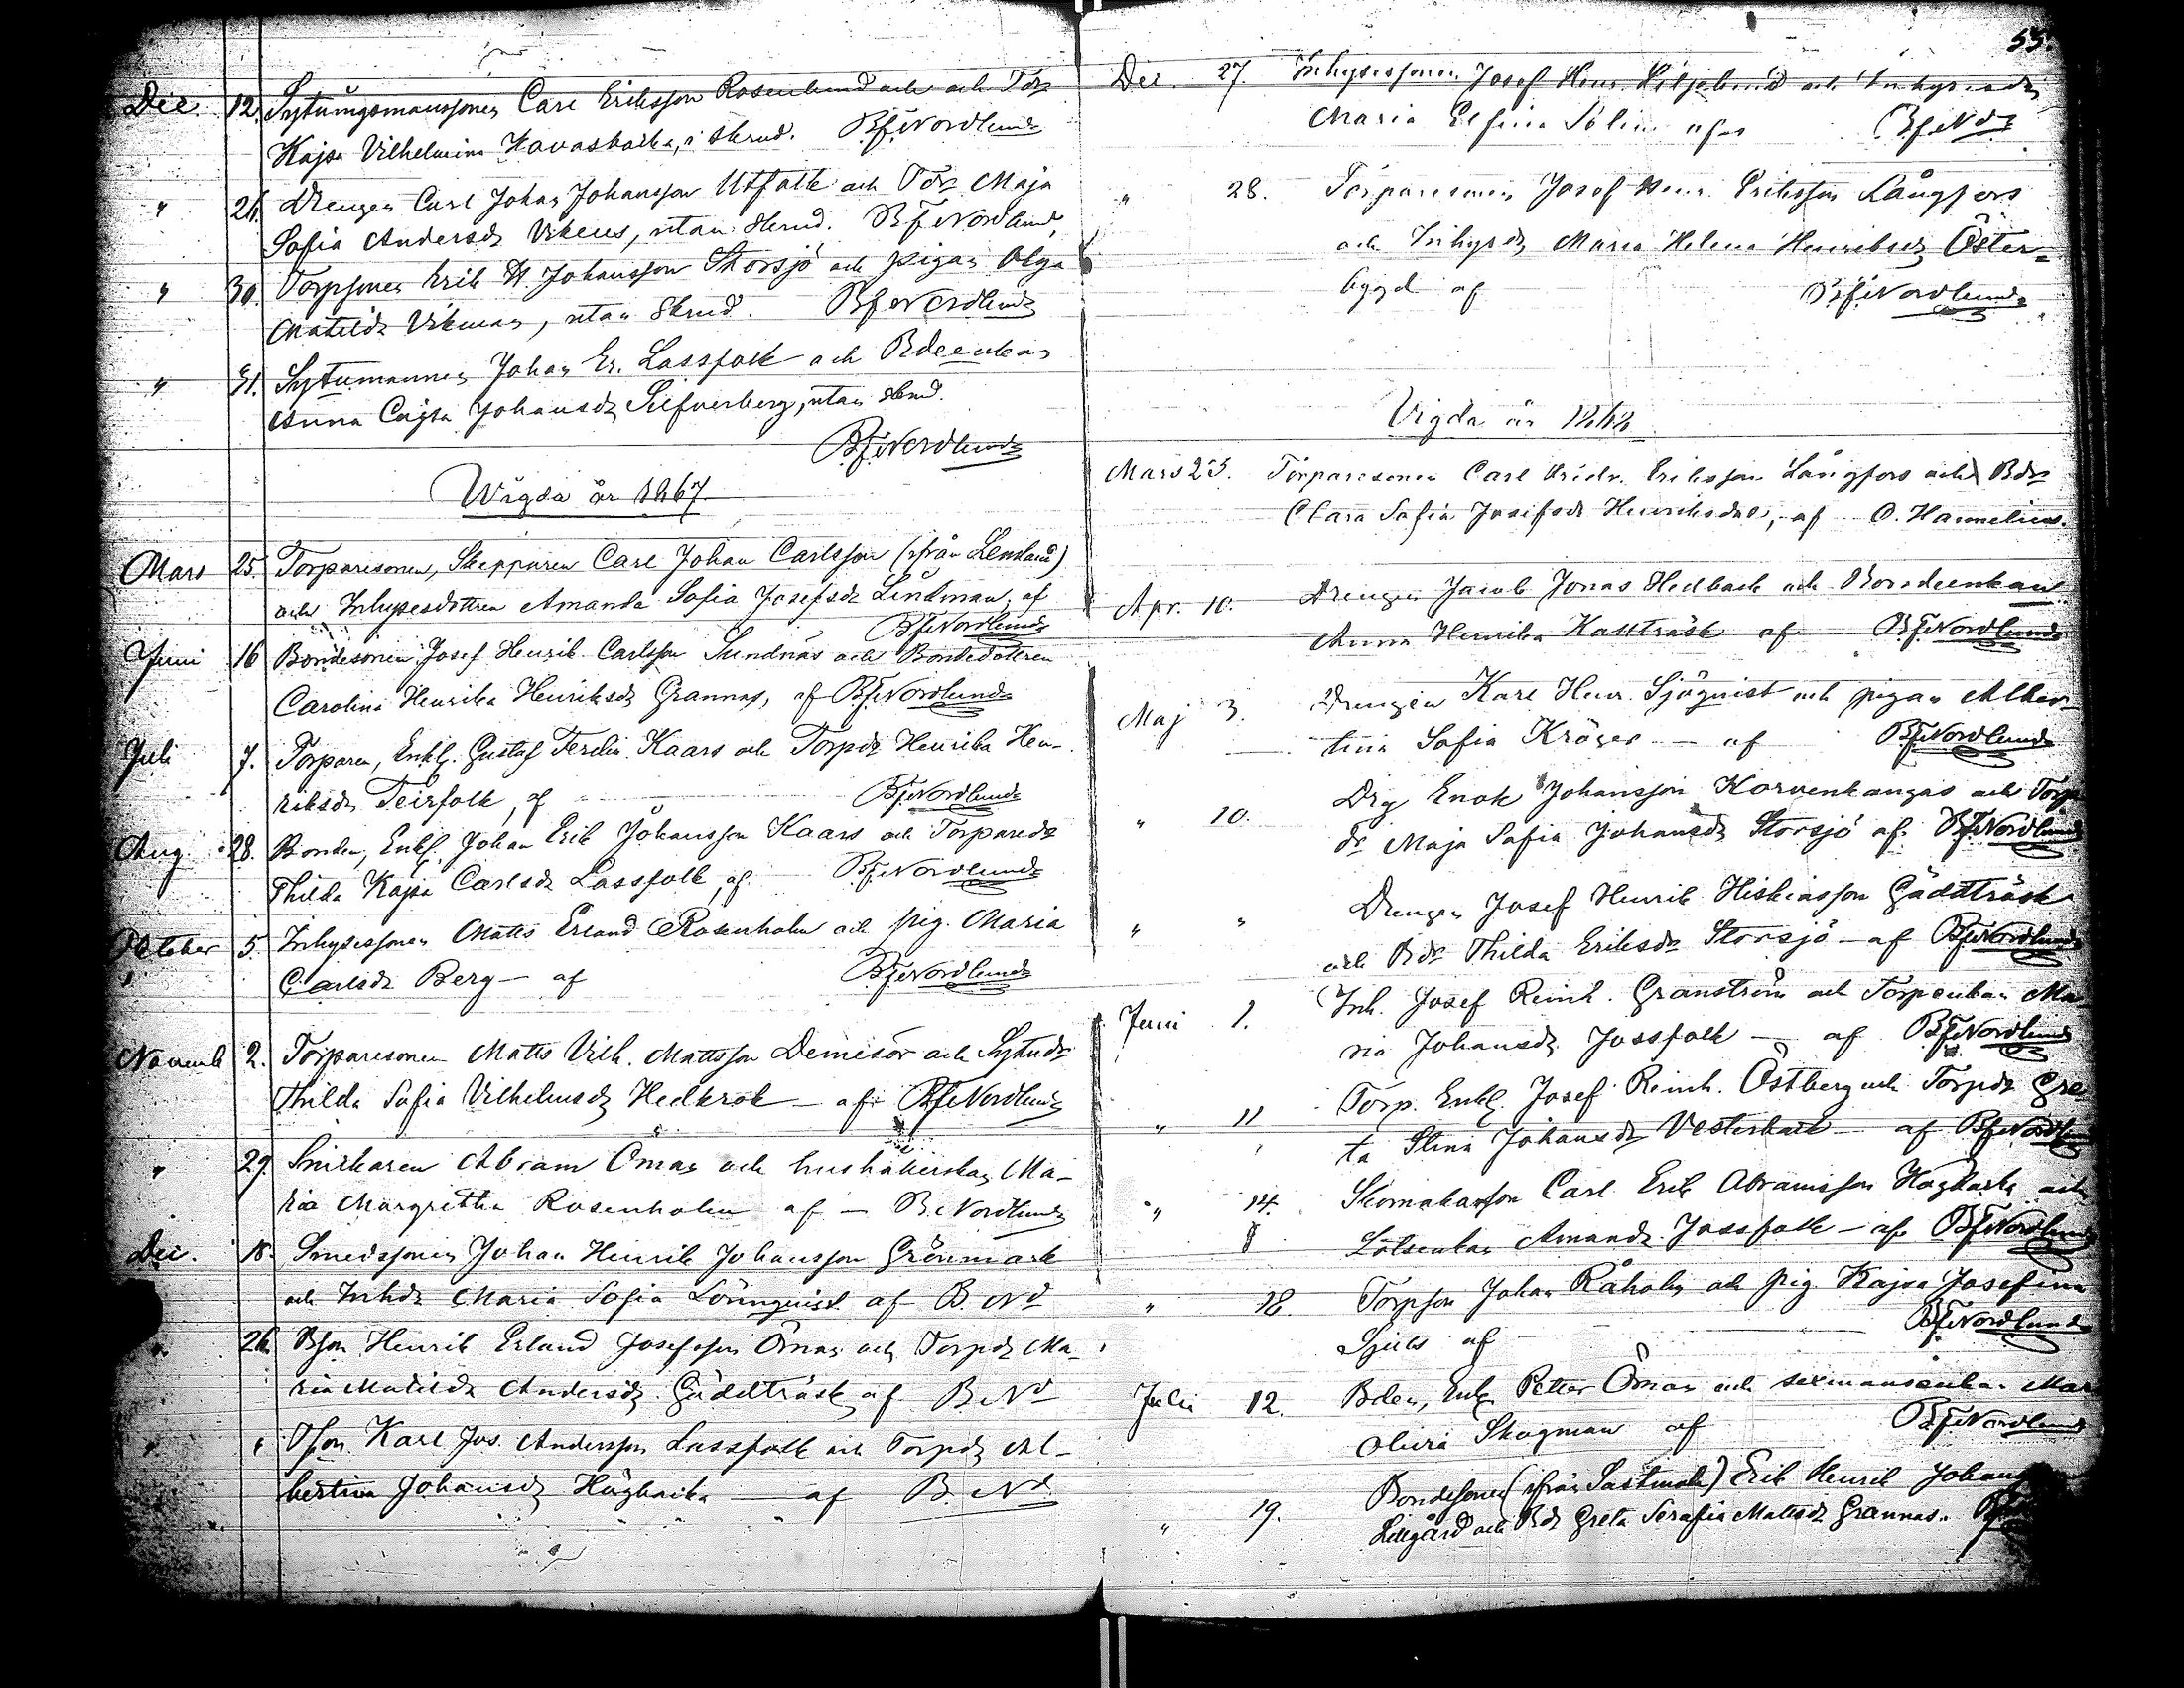 Dec. 12. Sytningsmanssonen Carl Eriksson Rosenlund och Tdr
Kajsa Vilhelmina Havasbacka, i skrud. B.F. Nordlund
" 26. Drengen Carl Johan Johansson Utfolk och Tdr Maja
Sofia Andersdr Vikeus, utan skrud. B F Nordlund,
" 30. Torpsonen Erik H. Johansson Storsjö och pigan Olga
Matilda Vikman, utan skrud. B F Nordlund
" 31. Sytnmannen Johan Er. Lassfolk och Bdeenkan
Anna Cajsa Johansdr Silfverberg, utan skrud.
B.F. Nordlund
Wigda år 1867.
Mars 25. Torparesonen, Skepparen Carl Johan Carlsson (ifrån Lemland)
och Inhysesdottren Amanda Sofia Josefsdr Lindman, af
B F Nordlund
Juni 16 Bondesonen Josef Henrik Carlsson Sundnäs och Bondedottren
Carolina Henrika Henriksdr Grannas, af B F Nordlund
Juli 7. Torparen, Enkl. Gustaf Ferdin. Kaars och Torpdr Henrika Hen-
riksdr Teirfolk, af B F Nordlund
Aug. 28. Bonden, Enkl. Johan Erik Johansson Kaars och Torparedr
Thilda Kajsa Carlsdr Lassfolk, af B F Nordlund
October 5. Inhysessonen Matts Erland Rosenholm och pig. Maria
" Carlsdr Berg - af B F Nordlund
Novemb 2. Torparesonen Matts Vilh. Mattsson Demisor och Sytndr
Thilda Sofia Vilhelmsdr Hedkrok - af B F Nordlund
" 29. Snickaren Abram Öman och hushållerskan Ma-
ria Margretha Rosenholm af - B. Nordlund
Dec. 18. Smedssonen Johan Henrik Johansson Grönmark
och Inhdr Maria Sofia Lönnquist af B. Nd
" 26. Bson Henrik Erland Josefsson Öman och Torpdr Ma-
ria Matilda Andersdr Gäddträsk af B. Nd
" " Tson Karl Jos. Andersson Lassfolk och Torpdr Al-
bertina Johansdr Högbacka - af B. Nd
55.
Dec. 27. Inhysessonen Josef Henr. Liljelund och Inhysesdr
Maria Elfina Solin af B.F. Nd
" 28. Torparesonen Josef Henr. Eriksson Långfors
och Inhysdr Maria Helena Henriksdr Öster-
bygd af B F Nordlund
Vigda år 1868
Mars 25. Torparesonen Carl Fridr. Eriksson Långfors och Bdr
Clara Sofia Josefsdr Henriksdal, af O. Hannelius.
Apr. 10. Drengen Jacob Jonas Hedback och Bondeenkan
Anna Henrika Kallträsk af B F Nordlund
Maj 3. Drengen Karl Henr. Sjöqvist och pigan Alber-
tina Sofia Kröger - af B F Nordlund
" 10. Drg Enok Johansson Korvenkangas och Torp
dr Maja Sofia Johansdr Storsjö af. B F Nordlund
" " Drengen Josef Henrik Hiskiasson Gäddträsk
och Bdr Thilda Eriksdr Storsjö - af B F Nordlund
Juni 1. Inh. Josef Reinh. Granström och Torpenkan Ma-
ria Johansdr Jossfolk - af B F Nordlund
" 11 Torp. Enkl. Josef Reinh. Östberg och Torpdr Gre-
ta Stina Johansdr Vesterback - af B F Nordlund
" 14. Skomakarson Carl Erik Abramsson Högback och
Lotsenkan Amanda Jossfolk - af B F Nordlund
" 18. Torpson Johan Råholm och pig Kajsa Josefina
af B F Nordlund
Julii 12. Bden, Enkl Petter Öman och sexmansenkan Mar
Olivia Skogman af B F Nordlund
" 19. Bondesonen (ifrån Sastmola) Erik Henrik Johans
Lillgård och Bdr Greta Serafia Mattsdr Grannas.